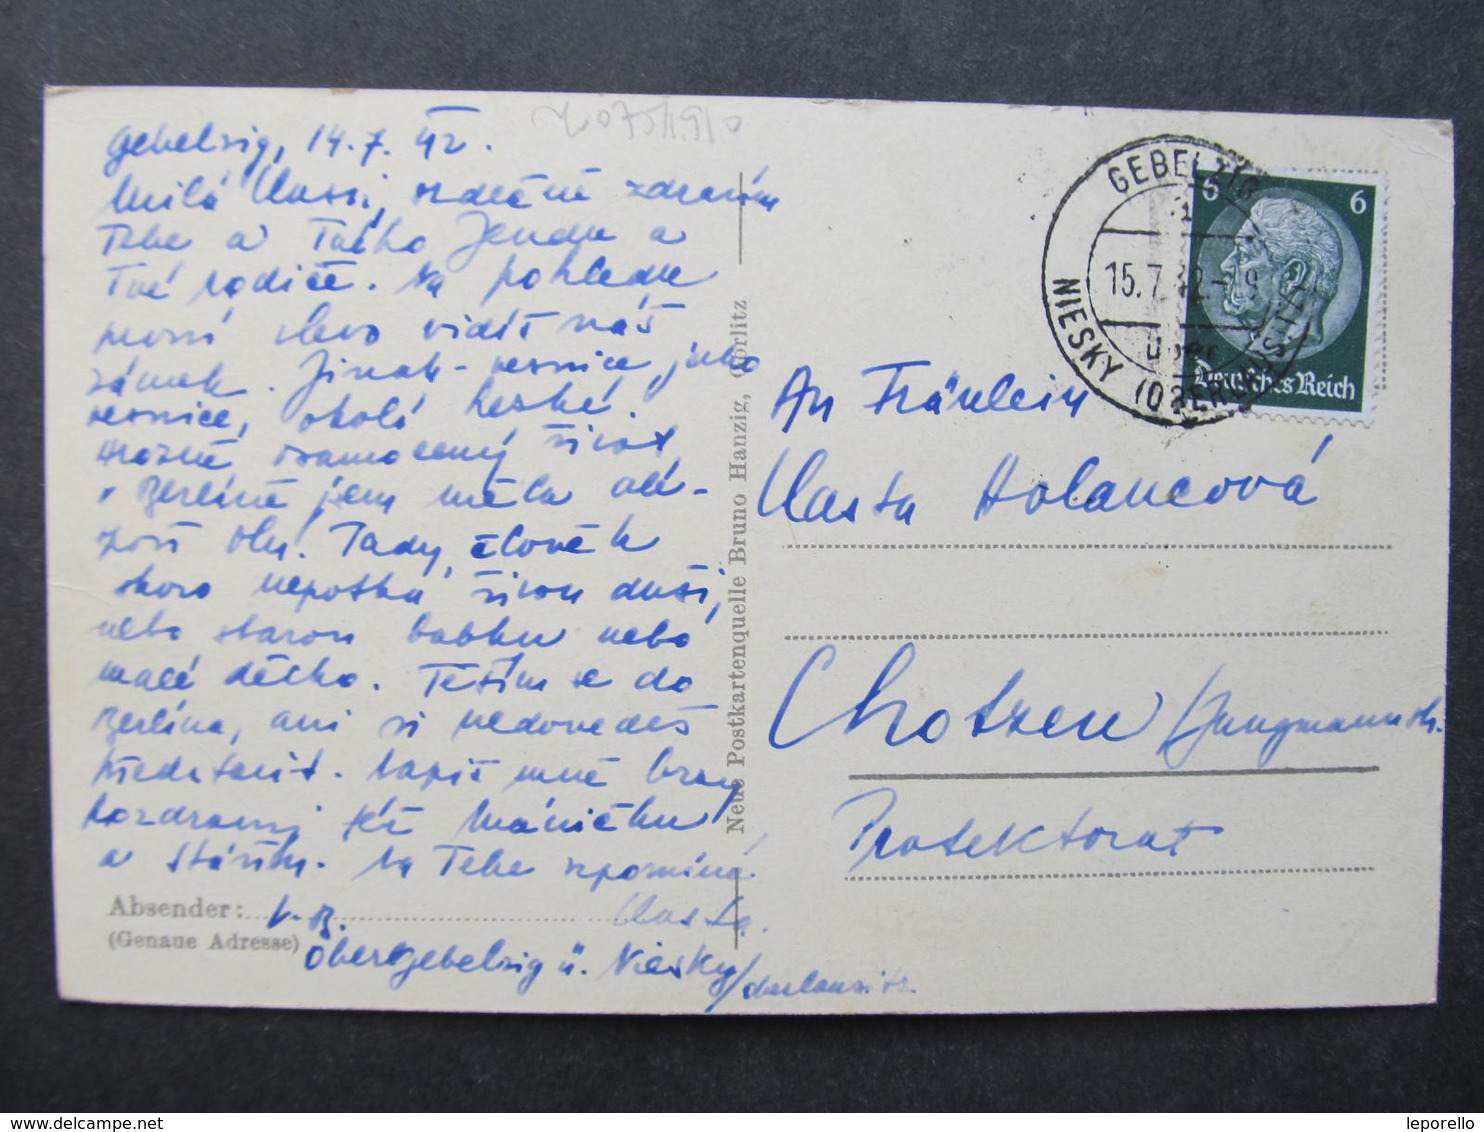 Gebelzig, 14.7.42.
Milá Vlasti, srdečně zdravím
Tebe a Tvého Jendu a
Tvé rodiče. Na pohledu
první vlevo vidíš náš
zámek. Jinak - vesnice jako
vesnice, okolí hezké.
Hrozně osamocený život,
v Berlíně jem měla ale-
spoň Olu. Tady, člověk
skoro nepotká živou duši,
nebo starou babku nebo
malé děcko. Těším se do
Berlína, ani si nedovedeš
představit. Napiš mně brzy
Pozdravuj též Máničku
a Stáňu. Na Tebe vzpomíná
Vlasta.
Absender: V. B.
(Genaue Adresse)
Obergebelzig ü. Niesky/Oberlausitz.
Neue Postkartenquelle Bruno Hanzig, Görlitz
GEBELZIG
15.7.42-9
über
NIESKY (OBERLAUSITZ)
6 6
Deutsches Reich
An Fräulein
Vlasta Holancová
Chotzen /Jungmannstr.
Protektorat
delcampe.net
leporello